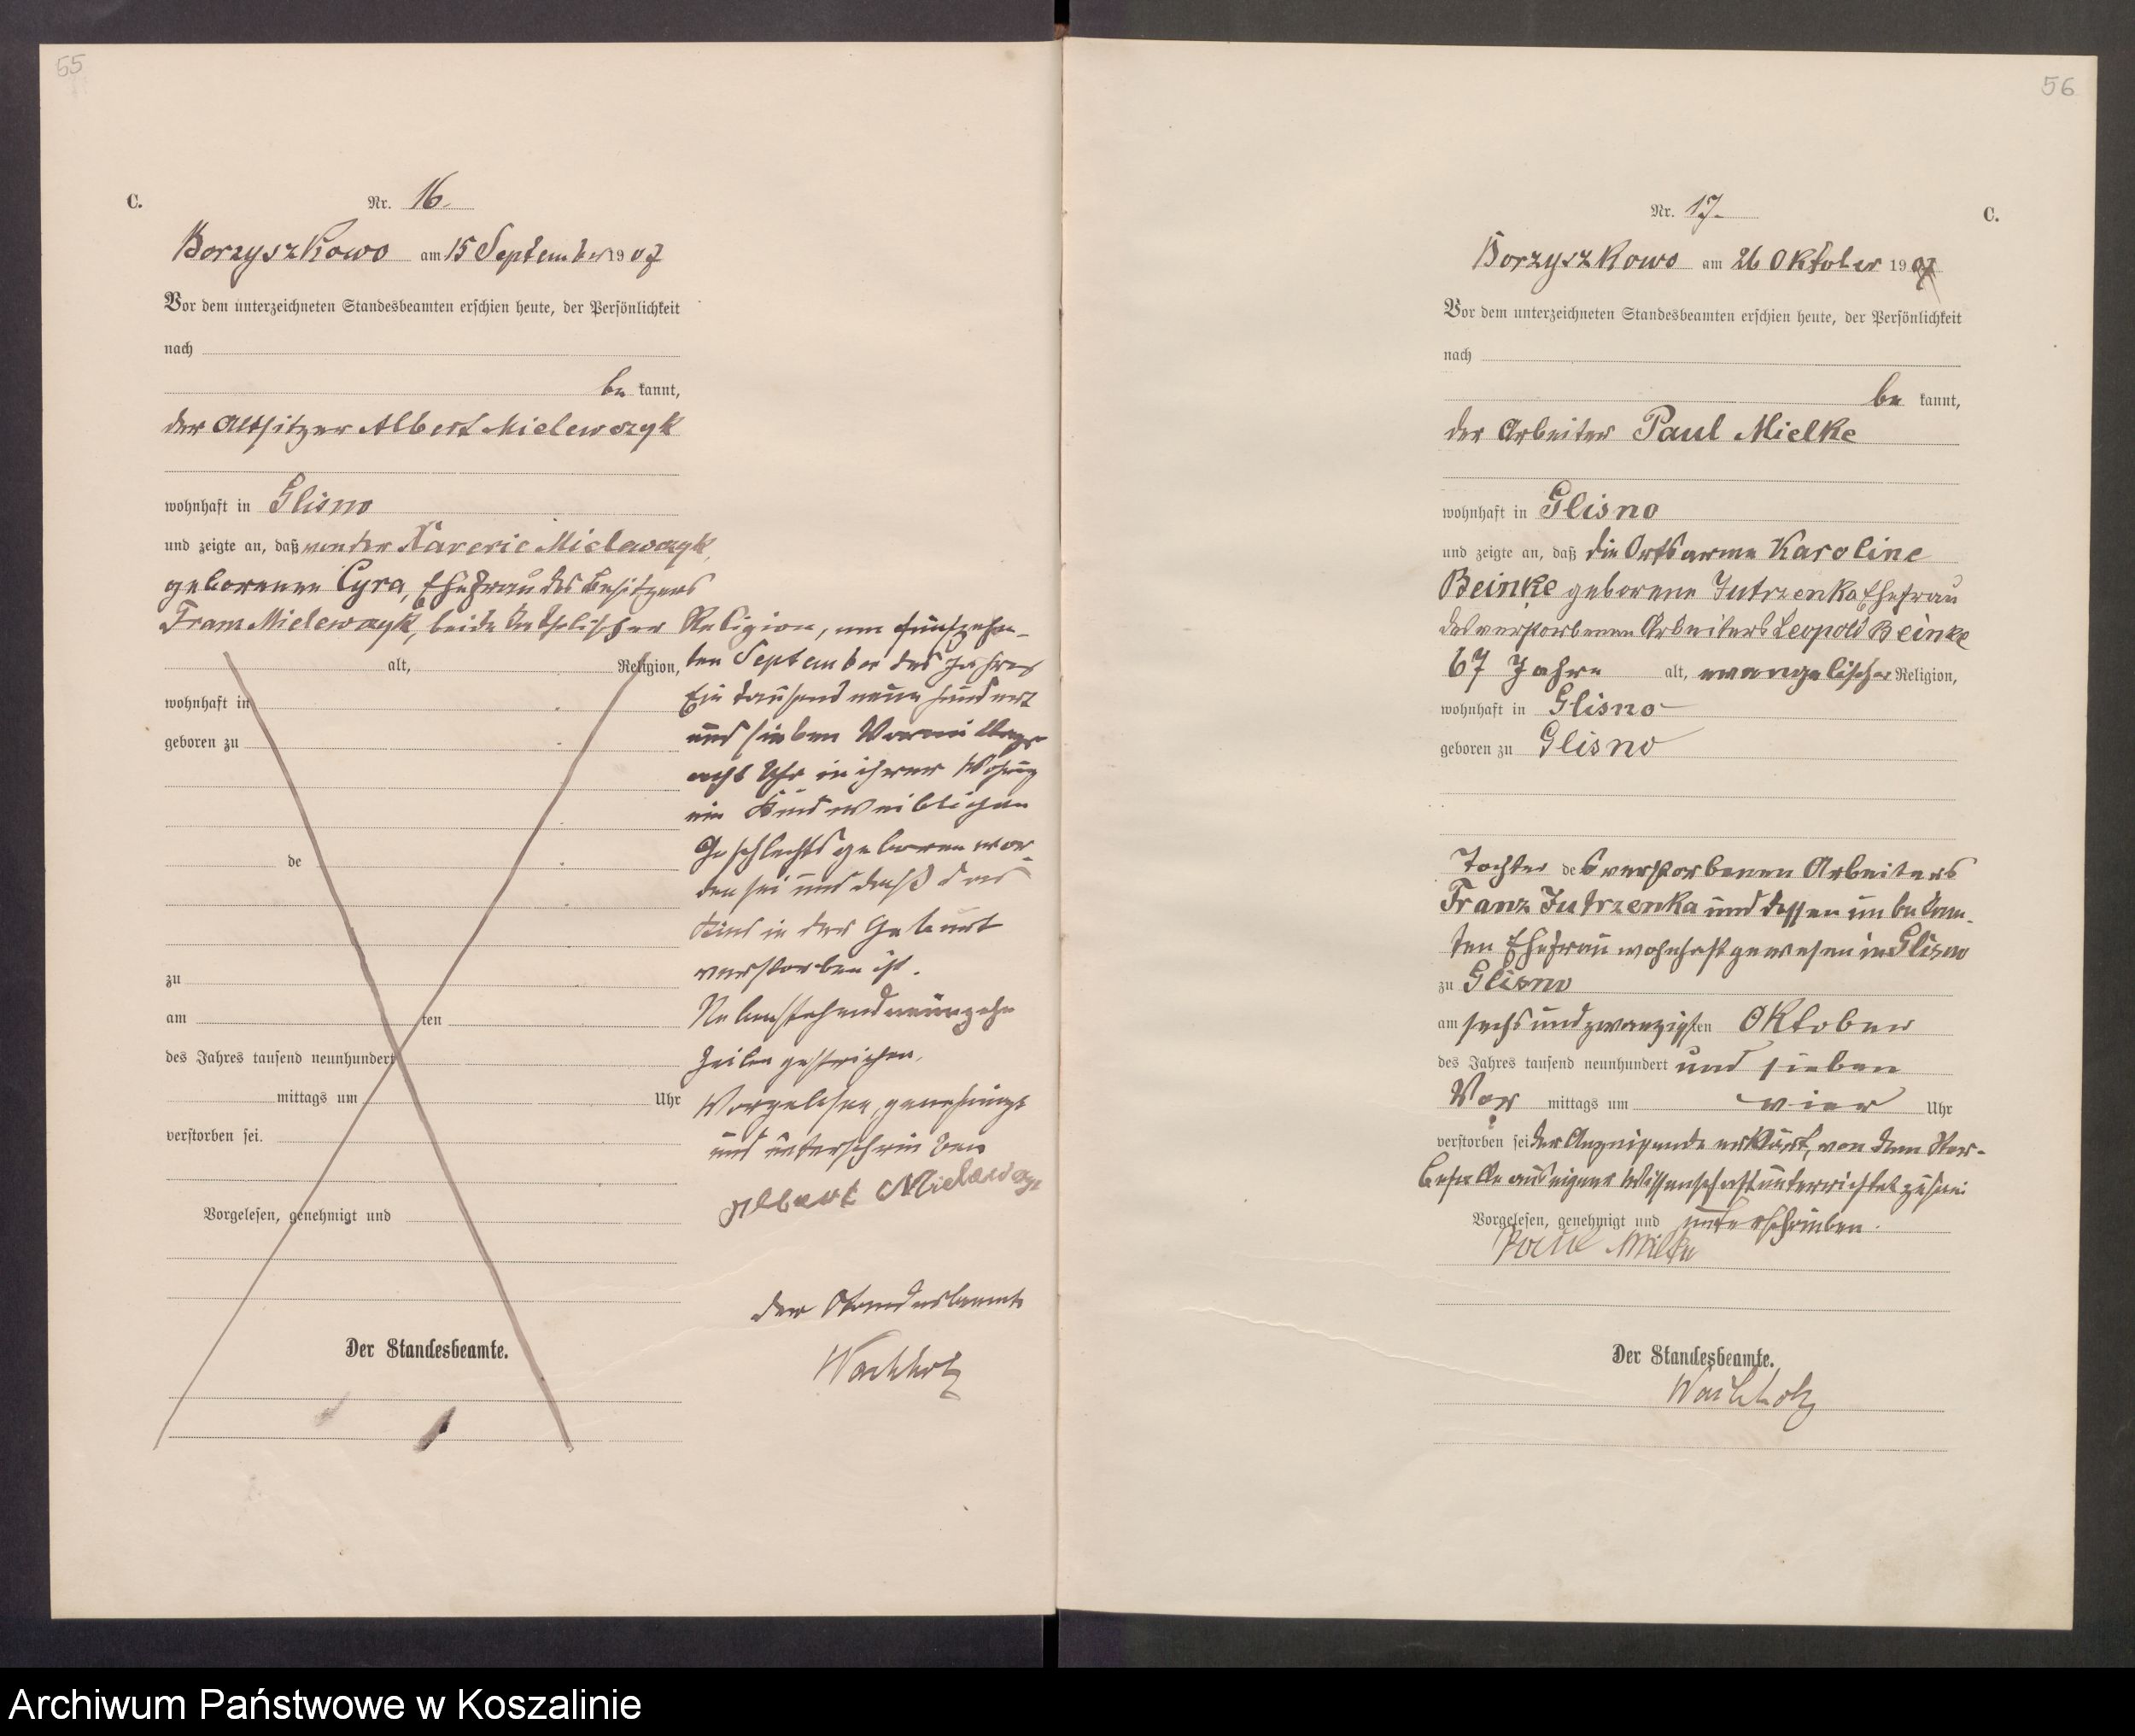 55
C.
Nr. 16.
Borzyszkowo am 15 September 1907
Vor dem unterzeichneten Standesbeamten erschien heute, der Persönlichkeit
nach
be kannt,
der Altsitzer Albert Mielewczyk
wohnhaft in Glisno
und zeigte an, daß von der Xaverie Mielewczyk,
geborenen Cyra, Ehefrau des Besitzers
Franz Mielewczyk, beide katholischer Religion, am fünfzehn-
alt, Religion,
ten September des Jahres
Ein tausend neun hundert
wohnhaft in
und sieben Vormittags
geboren zu
acht Uhr in ihrer Wohung
ein Kind weiblichen
Geschlechts geboren wor-
de
den sei und daß das
Kind in der Geburt
verstorben ist.
zu
Nebenstehend neunzehn
am ten
Zeilen gestrichen.
des Jahres tausend neunhundert
mittags um Uhr
Vorgelesen, genehmigt
verstorben sei.
und unterschrieben
Albert Mielewczyk
Vorgelesen, genehmigt und
der Standesbeamte
Der Standesbeamte.
Wachholz
56
Nr. 17.
C.
Borzyszkowo am 26 Oktober 1907
Vor dem unterzeichneten Standesbeamten erschien heute, der Persönlichkeit
nach
be kannt,
der Arbeiter Paul Mielke
wohnhaft in Glisno
und zeigte an, daß die Ortsarme Karoline
Beinke geborene Jutrzenka Ehefrau
des verstorbenen Arbeiters Leopold Beinke
67 Jahre alt, evangelischer Religion,
wohnhaft in Glisno
geboren zu Glisno
Tochter des verstorbenen Arbeiters
Franz Jutrzenka und dessen unbekan-
ten Ehefrau wohnhaft gewesen in Glisno
zu Glisno
am sechsundzwanzigsten Oktober
des Jahres tausend neunhundert und sieben
Vor mittags um vier Uhr
verstorben sei der Anzeigende erklärt, von dem Ster-
befalle aus eigener Wissenschaft unterrichtet zu sein
Vorgelesen, genehmigt und unterschrieben.
Paul Mielke
Der Standesbeamte.
Wachholz
Archiwum Państwowe w Koszalinie